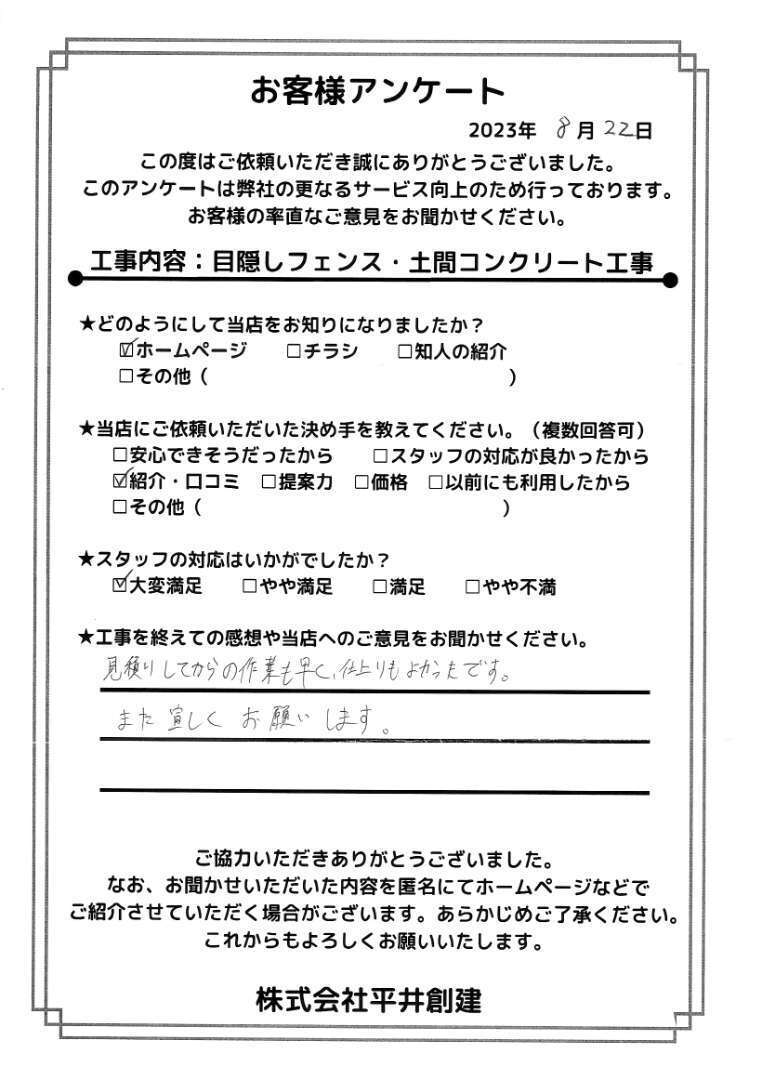 お客様アンケート
2023年 8月22日
この度はご依頼いただき誠にありがとうございました。
このアンケートは弊社の更なるサービス向上のため行っております。
お客様の率直なご意見をお聞かせください。
工事内容：目隠しフェンス・土間コンクリート工事
★どのようにして当店をお知りになりましたか？
☑ホームページ □チラシ □知人の紹介
□その他（ ）
★当店にご依頼いただいた決め手を教えてください。（複数回答可）
□安心できそうだったから □スタッフの対応が良かったから
☑紹介・口コミ □提案力 □価格 □以前にも利用したから
□その他（ ）
★スタッフの対応はいかがでしたか？
☑大変満足 □やや満足 □満足 □やや不満
★工事を終えての感想や当店へのご意見をお聞かせください。
見積りしてからの作業も早く、仕上りもよかったです。
また宜しくお願いします。
ご協力いただきありがとうございました。
なお、お聞かせいただいた内容を匿名にてホームページなどで
ご紹介させていただく場合がございます。あらかじめご了承ください。
これからもよろしくお願いいたします。
株式会社平井創建